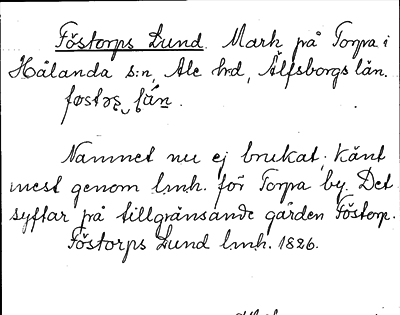 Föstorps Lund. Mark på Torpa i
Hålanda s:n, Ale hrd, Älfsborgs län.
Namnet nu ej brukat; känt
mest genom lmh. för Torpa by. Det
syftar på tillgränsande gården Föstorp.
Föstorps Lund lmh. 1826.